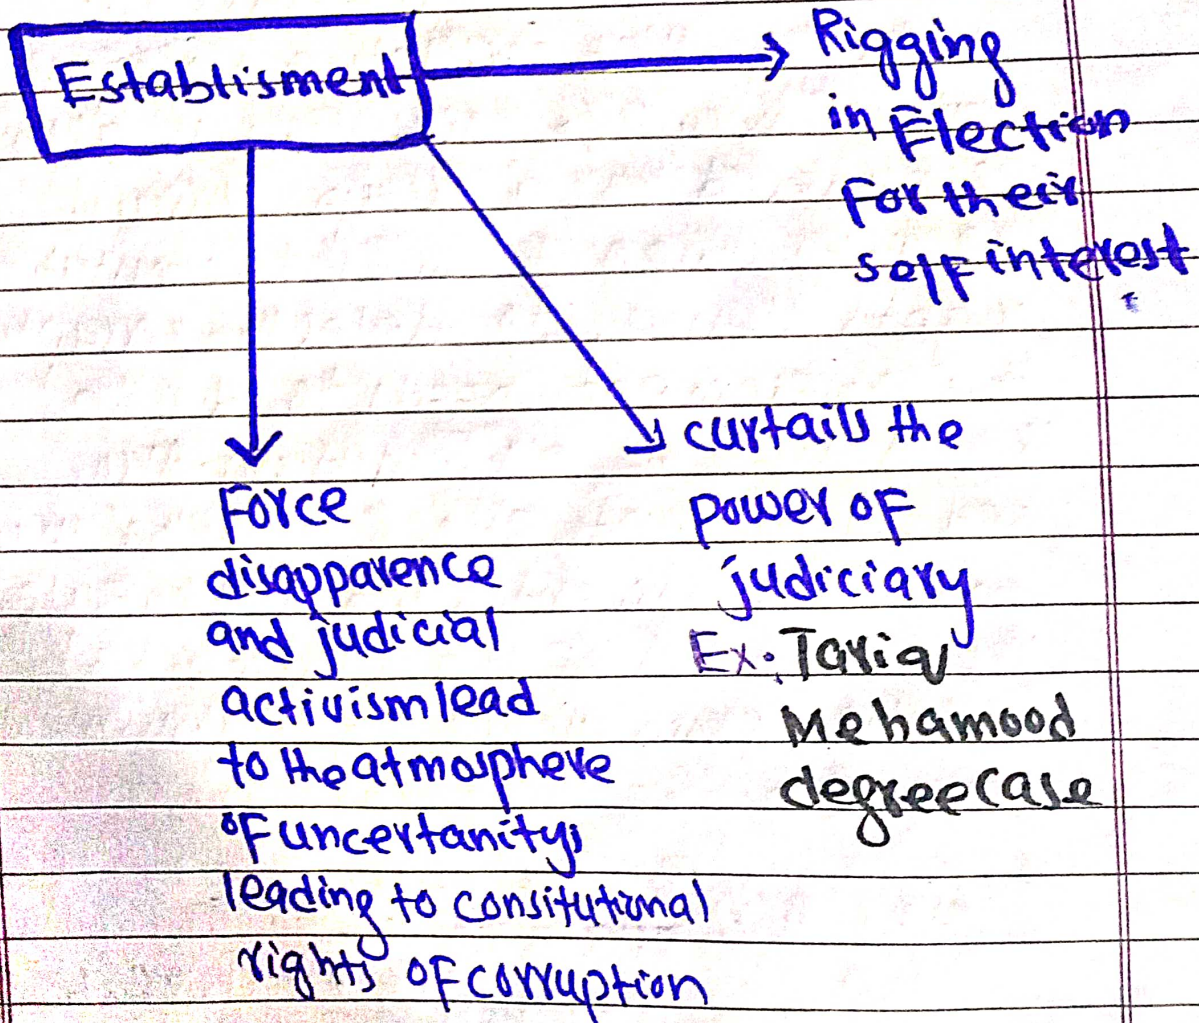 Establisment
Rigging
in Election
For their
self interest
Force
disapparence
and judicial
activism lead
to the atmosphere
of uncertanity,
leading to consitutional
rights of corruption
curtails the
power of
judiciary
Ex: Tariq
Mehamood
degree case